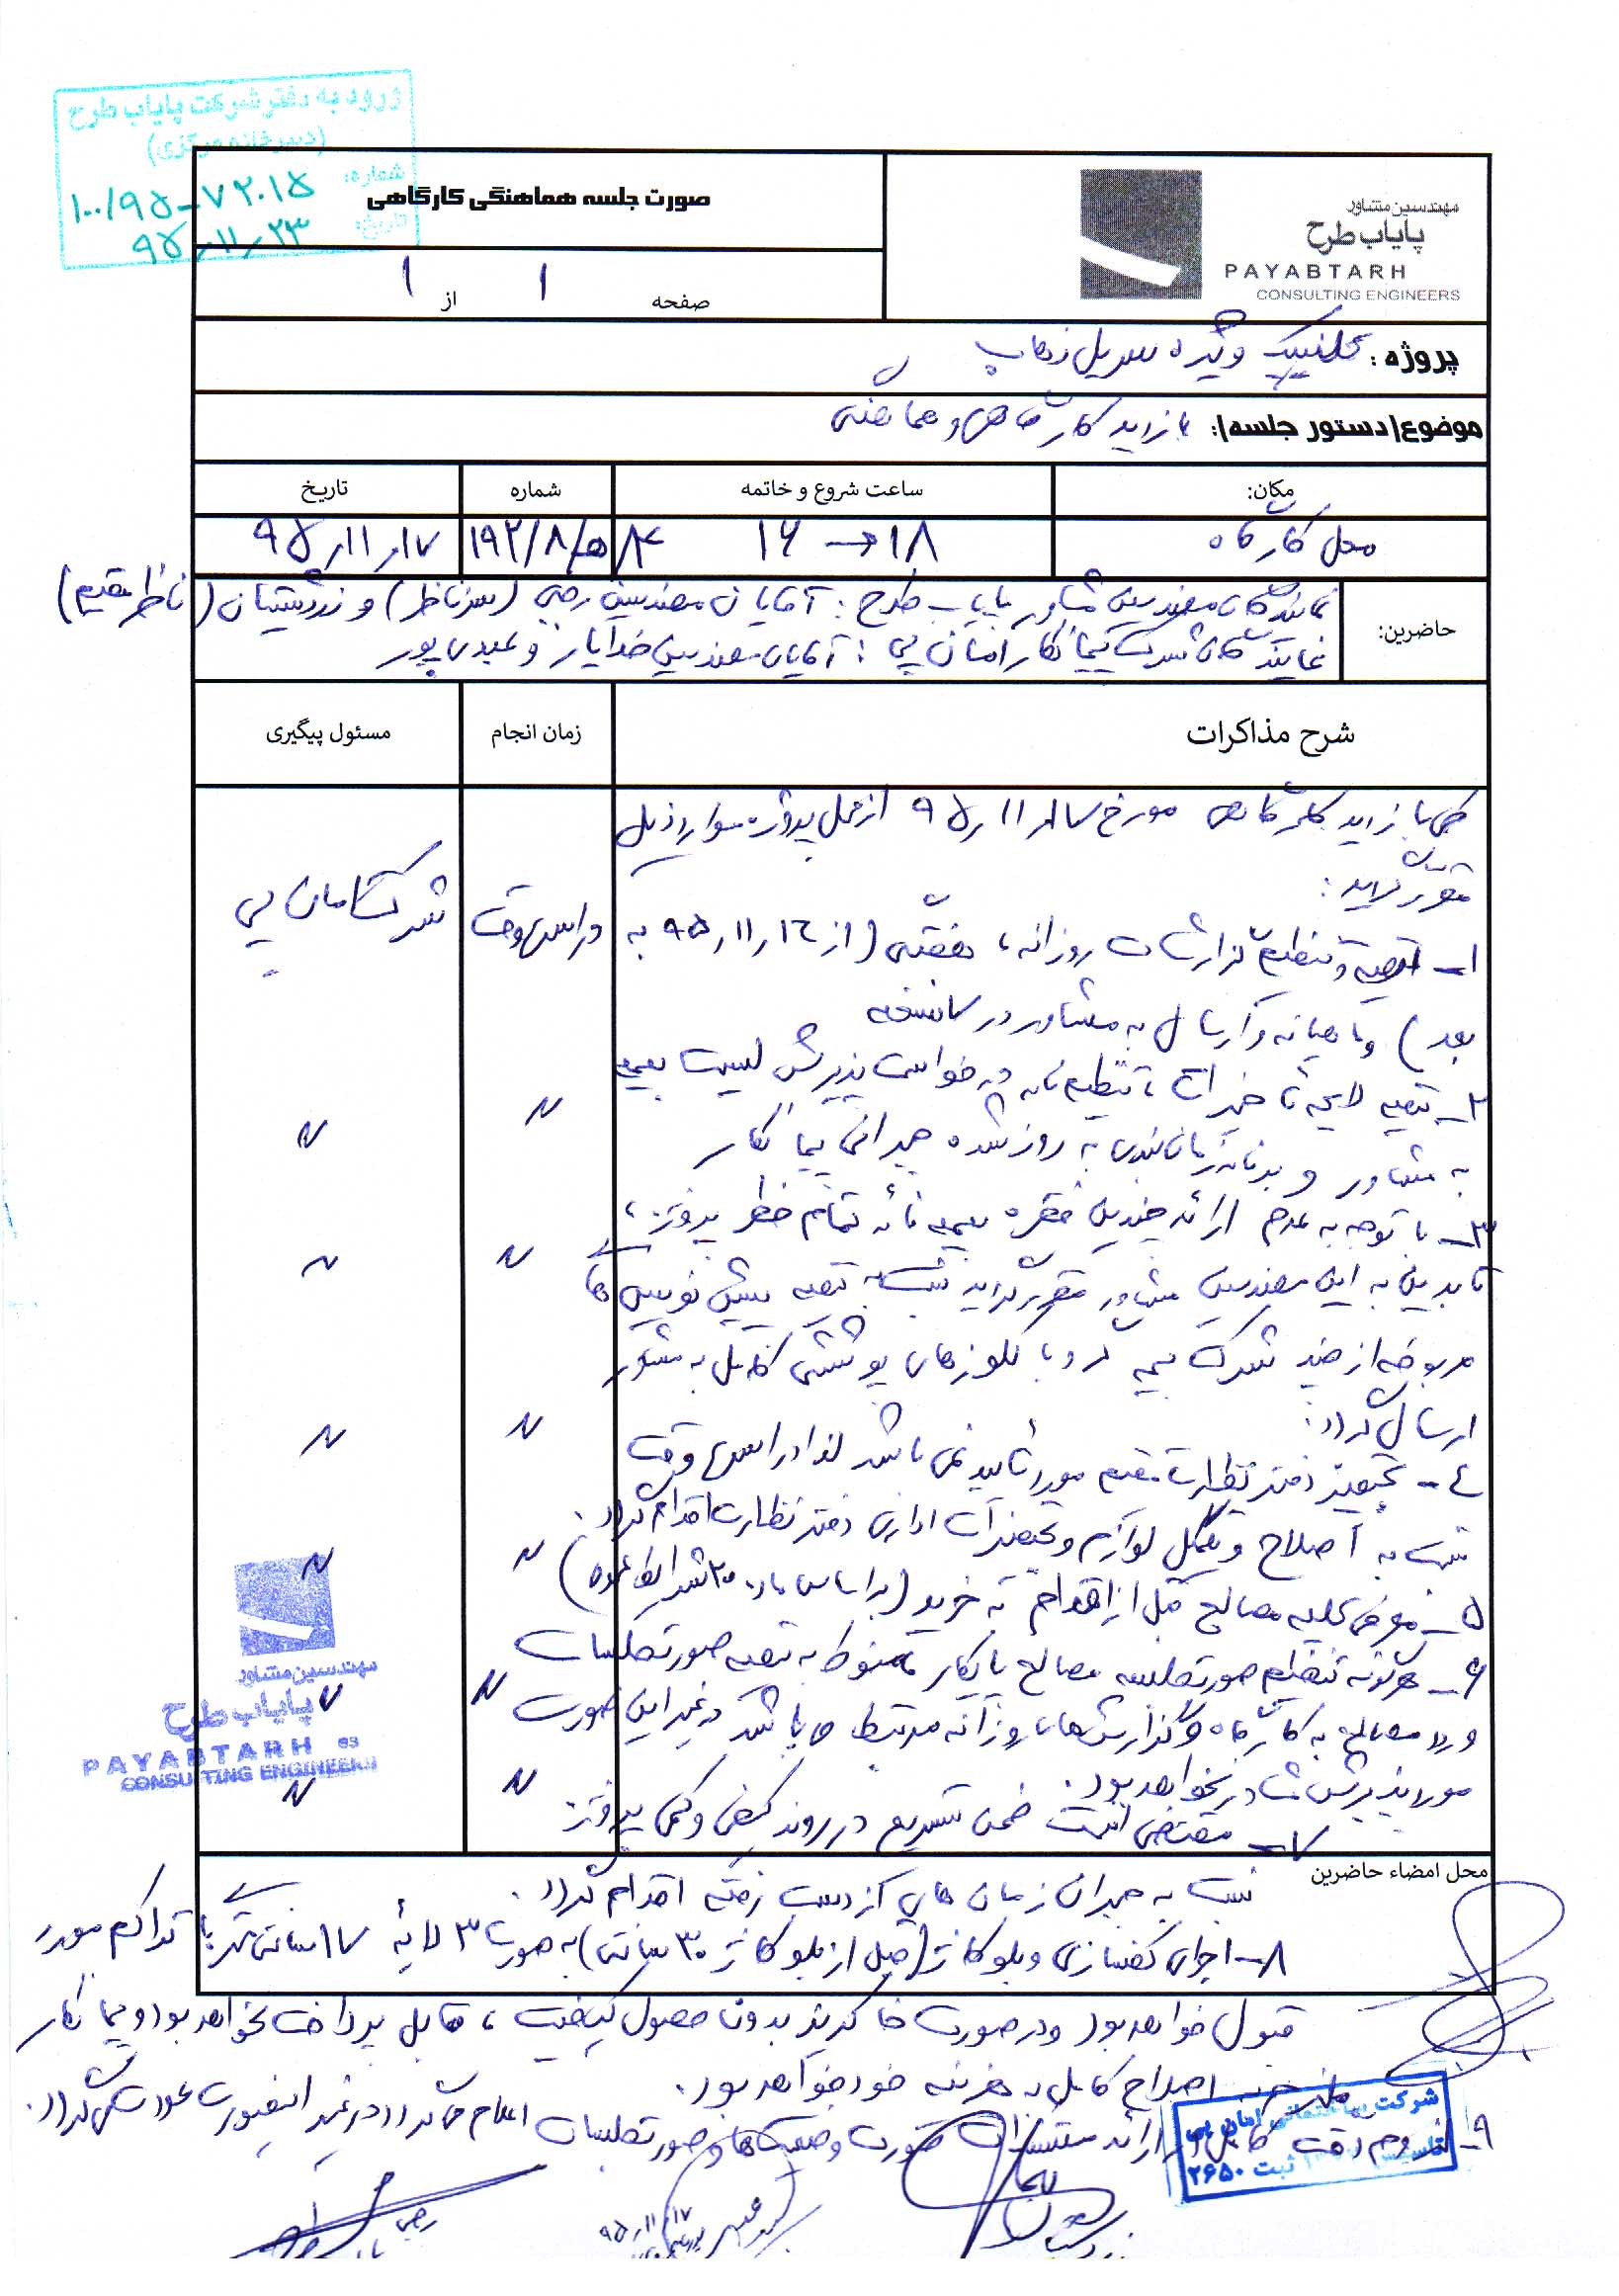 ورود به دفتر شرکت پایاب طرح
(دبیرخانه مرکزی)
شماره: ۱۰۰/۹۵-۷۲۰۱۵
تاریخ: ۹۵,۱۱,۲۳
صورت جلسه هماهنگی کارگاهی
صفحه ۱ از ۱
مهندسین مشاور
پایاب طرح
PAYABTARH
CONSULTING ENGINEERS
پروژه: کلینیک ویژه سرپل ذهاب
موضوع(دستور جلسه): بازدید کارگاهی و هماهنگی
مکان: ساعت شروع و خاتمه شماره تاریخ
محل کارگاه ۱۶ → ۱۸ ۱۹۲/۸/ه/۸۴ ۹۵,۱۱,۱۷
حاضرین: نمایندگان مهندسین مشاور پایاب طرح: آقایان مهندسین رجبی (سرناظر) و زردشتیان (ناظر مقیم)
نمایندگان شرکت پیمانکار امان پی: آقایان مهندسین خدایار و عبدی پور
شرح مذاکرات زمان انجام مسئول پیگیری
طی بازدید کارگاهی مورخ ۹۵,۱۱,۱۷ از محل پروژه موارد ذیل
مقرر گردید:
۱- تهیه و تنظیم گزارشات روزانه، هفتگی (از ۹۵,۱۱,۱۶ به در اسرع وقت شرکت امان پی
بعد) و ماهیانه و ارسال به مشاور در ۷ نسخه
۲- تهیه لایحه تاخیرات، تنظیم نامه درخواست پذیرش لیست بیمه 〃 〃
به مشاور و برنامه زمانبندی به روز شده جبرانی پیمانکار
۳- با توجه به عدم ارائه چندین فقره بیمه نامه تمام خطر پروژه، 〃 〃
تا بدین به این مهندسین مشاور مقرر گردید نسبت به تهیه پیش نویس های
مربوطه از چند شرکت بیمه گر و با کلوزهای پوششی کامل به مشاور
ارسال گردد.
۴- تجهیز دفتر نظارت مقیم مورد تایید نمی باشد لذا در اسرع وقت 〃 〃
نسبت به اصلاح و تکمیل لوازم و تجهیزات اداری دفتر نظارت اقدام گردد.
۵- معرفی کلیه مصالح قبل از اقدام به خرید (بر اساس ماده ۲۰ شرایط عمومی) 〃 〃
۶- هرگونه تنظیم صورتجلسه مصالح پایکار منوط به تهیه صورتجلسات
ورود مصالح به کارگاه و گزارش های روزانه مرتبط می باشد در غیر این صورت 〃 〃
مورد پذیرش مشاور نخواهد بود.
۷- مقتضی است ضمن تسریع در روند کیفی و کمی پروژه 〃 〃
مهندسین مشاور
پایاب طرح
PAYABTARH
CONSULTING ENGINEERS
محل امضاء حاضرین
نسبت به جبران زمان های از دست رفته اقدام گردد.
۸- اجرای کفسازی و بلوکاژ (قبل از بلوکاژ ۳۰ سانتی) به صورت ۳ لایه ۱۷ سانتی متری با تراکم مورد
قبول خواهد بود و در صورت خاکریز بدون حصول کیفیت، قابل پرداخت نخواهد بود و پیمانکار
ملزم به اصلاح کامل به هزینه خود خواهد بود.
۹- لزوم دقت کامل در ارائه مستندات صورت وضعیت ها و صورتجلسات اعلام می گردد در غیر اینصورت عودت می گردد.
شرکت ساختمانی امان پی
ثبت ۲۶۵۰
۹۵,۱۱,۱۷
رجبی